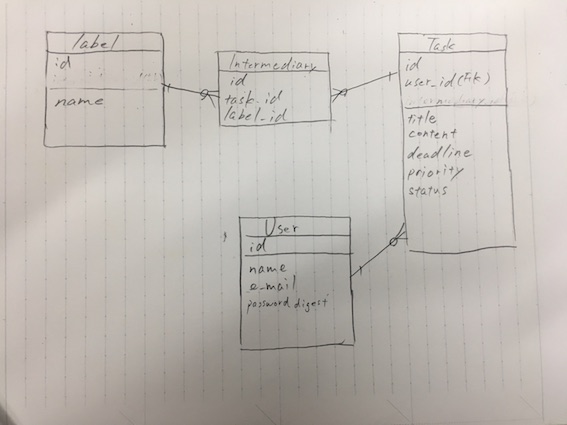 label
id
name
Intermediary
id
task_id
label_id
Task
id
user_id(FK)
title
content
deadline
priority
status
User
id
name
e-mail
password digest